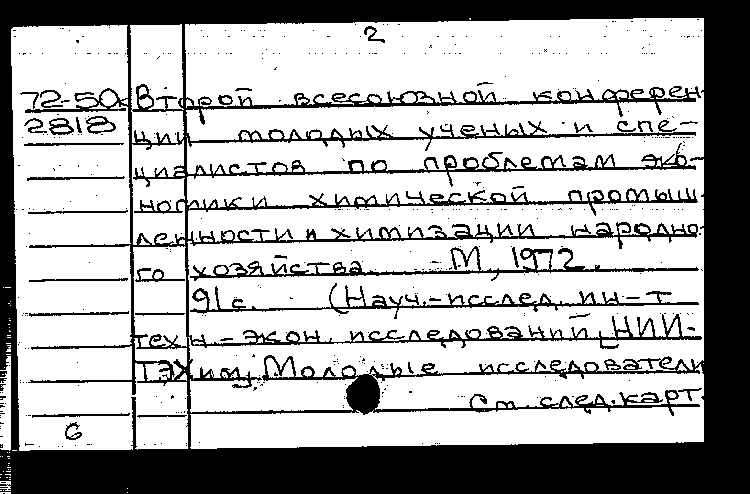 2
72-50к Второй всесоюзной конферен-
2818 ции молодых ученых и спе-
циалистов по проблемам эко-
номики химической промыш-
ленности и химизации народно-
го хозяйства. - М, 1972.
91 с. (Науч.-исслед. ин-т
техн-экон. исследований [НИИ-
ТЭХим] Молодые исследователи
См. след. карт.
6